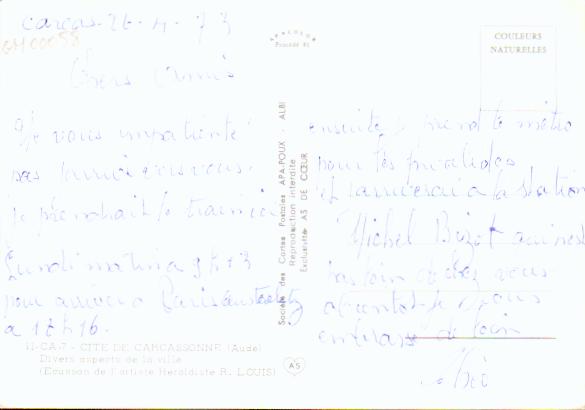 Carcas. 26-4-73
GM00058
Chers Amis
Je vous impatiente
pas
Je prendrait le train ici
Lundi matin a 9h
pour arriver a Paris austerlitz
a 18h16.
11-CA-7 - CITE DE CARCASSONNE (Aude)
Divers aspects de la ville
(Ecusson de l'artiste Héraldiste R. LOUIS)
Société des Cartes Postales APA-POUX - ALBI
Reproduction interdite
Exclusivité AS DE CŒUR
AS
APACOLOR
COULEURS
NATURELLES
ensuite je prend le métro
pour les invalides
et j'arriverai a la station
Michel Bizot qui nest
pas loin de chez vous
a bientot je vous
embrasse de loin